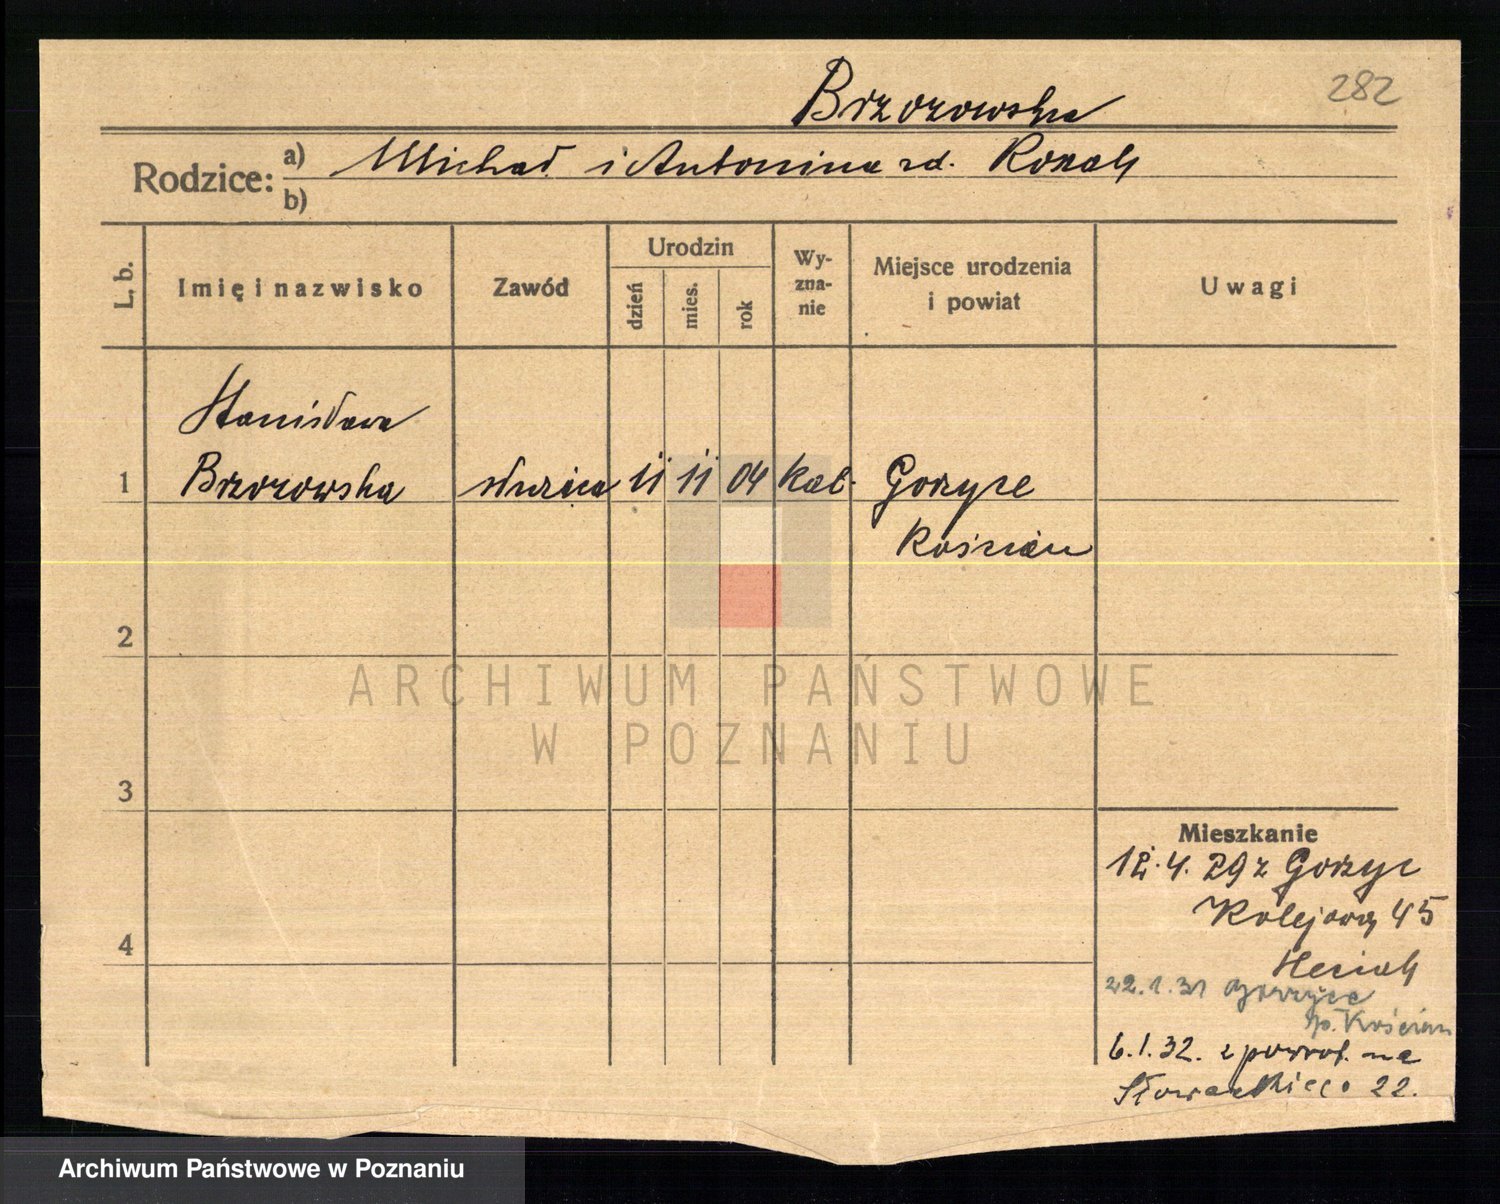 282
Brzozowska
Rodzice: a) Michał i Antonina zd. Kozak
b)
L. b.
Imię i nazwisko
Zawód
Urodzin
dzień
mies.
rok
Wy-
zna-
nie
Miejsce urodzenia
i powiat
Uwagi
Stanisława
1 Brzozowska służąca 11 11 04 kat. Gorzyce
Kościan
2
ARCHIWUM PAŃSTWOWE
W POZNANIU
3
Mieszkanie
12.4.29 z Gorzyc
Kolejowa 45
4
22.1.31 Gorzyce
p. Kościan
6.1.32. z powrot. na
Słowackiego 22.
Archiwum Państwowe w Poznaniu